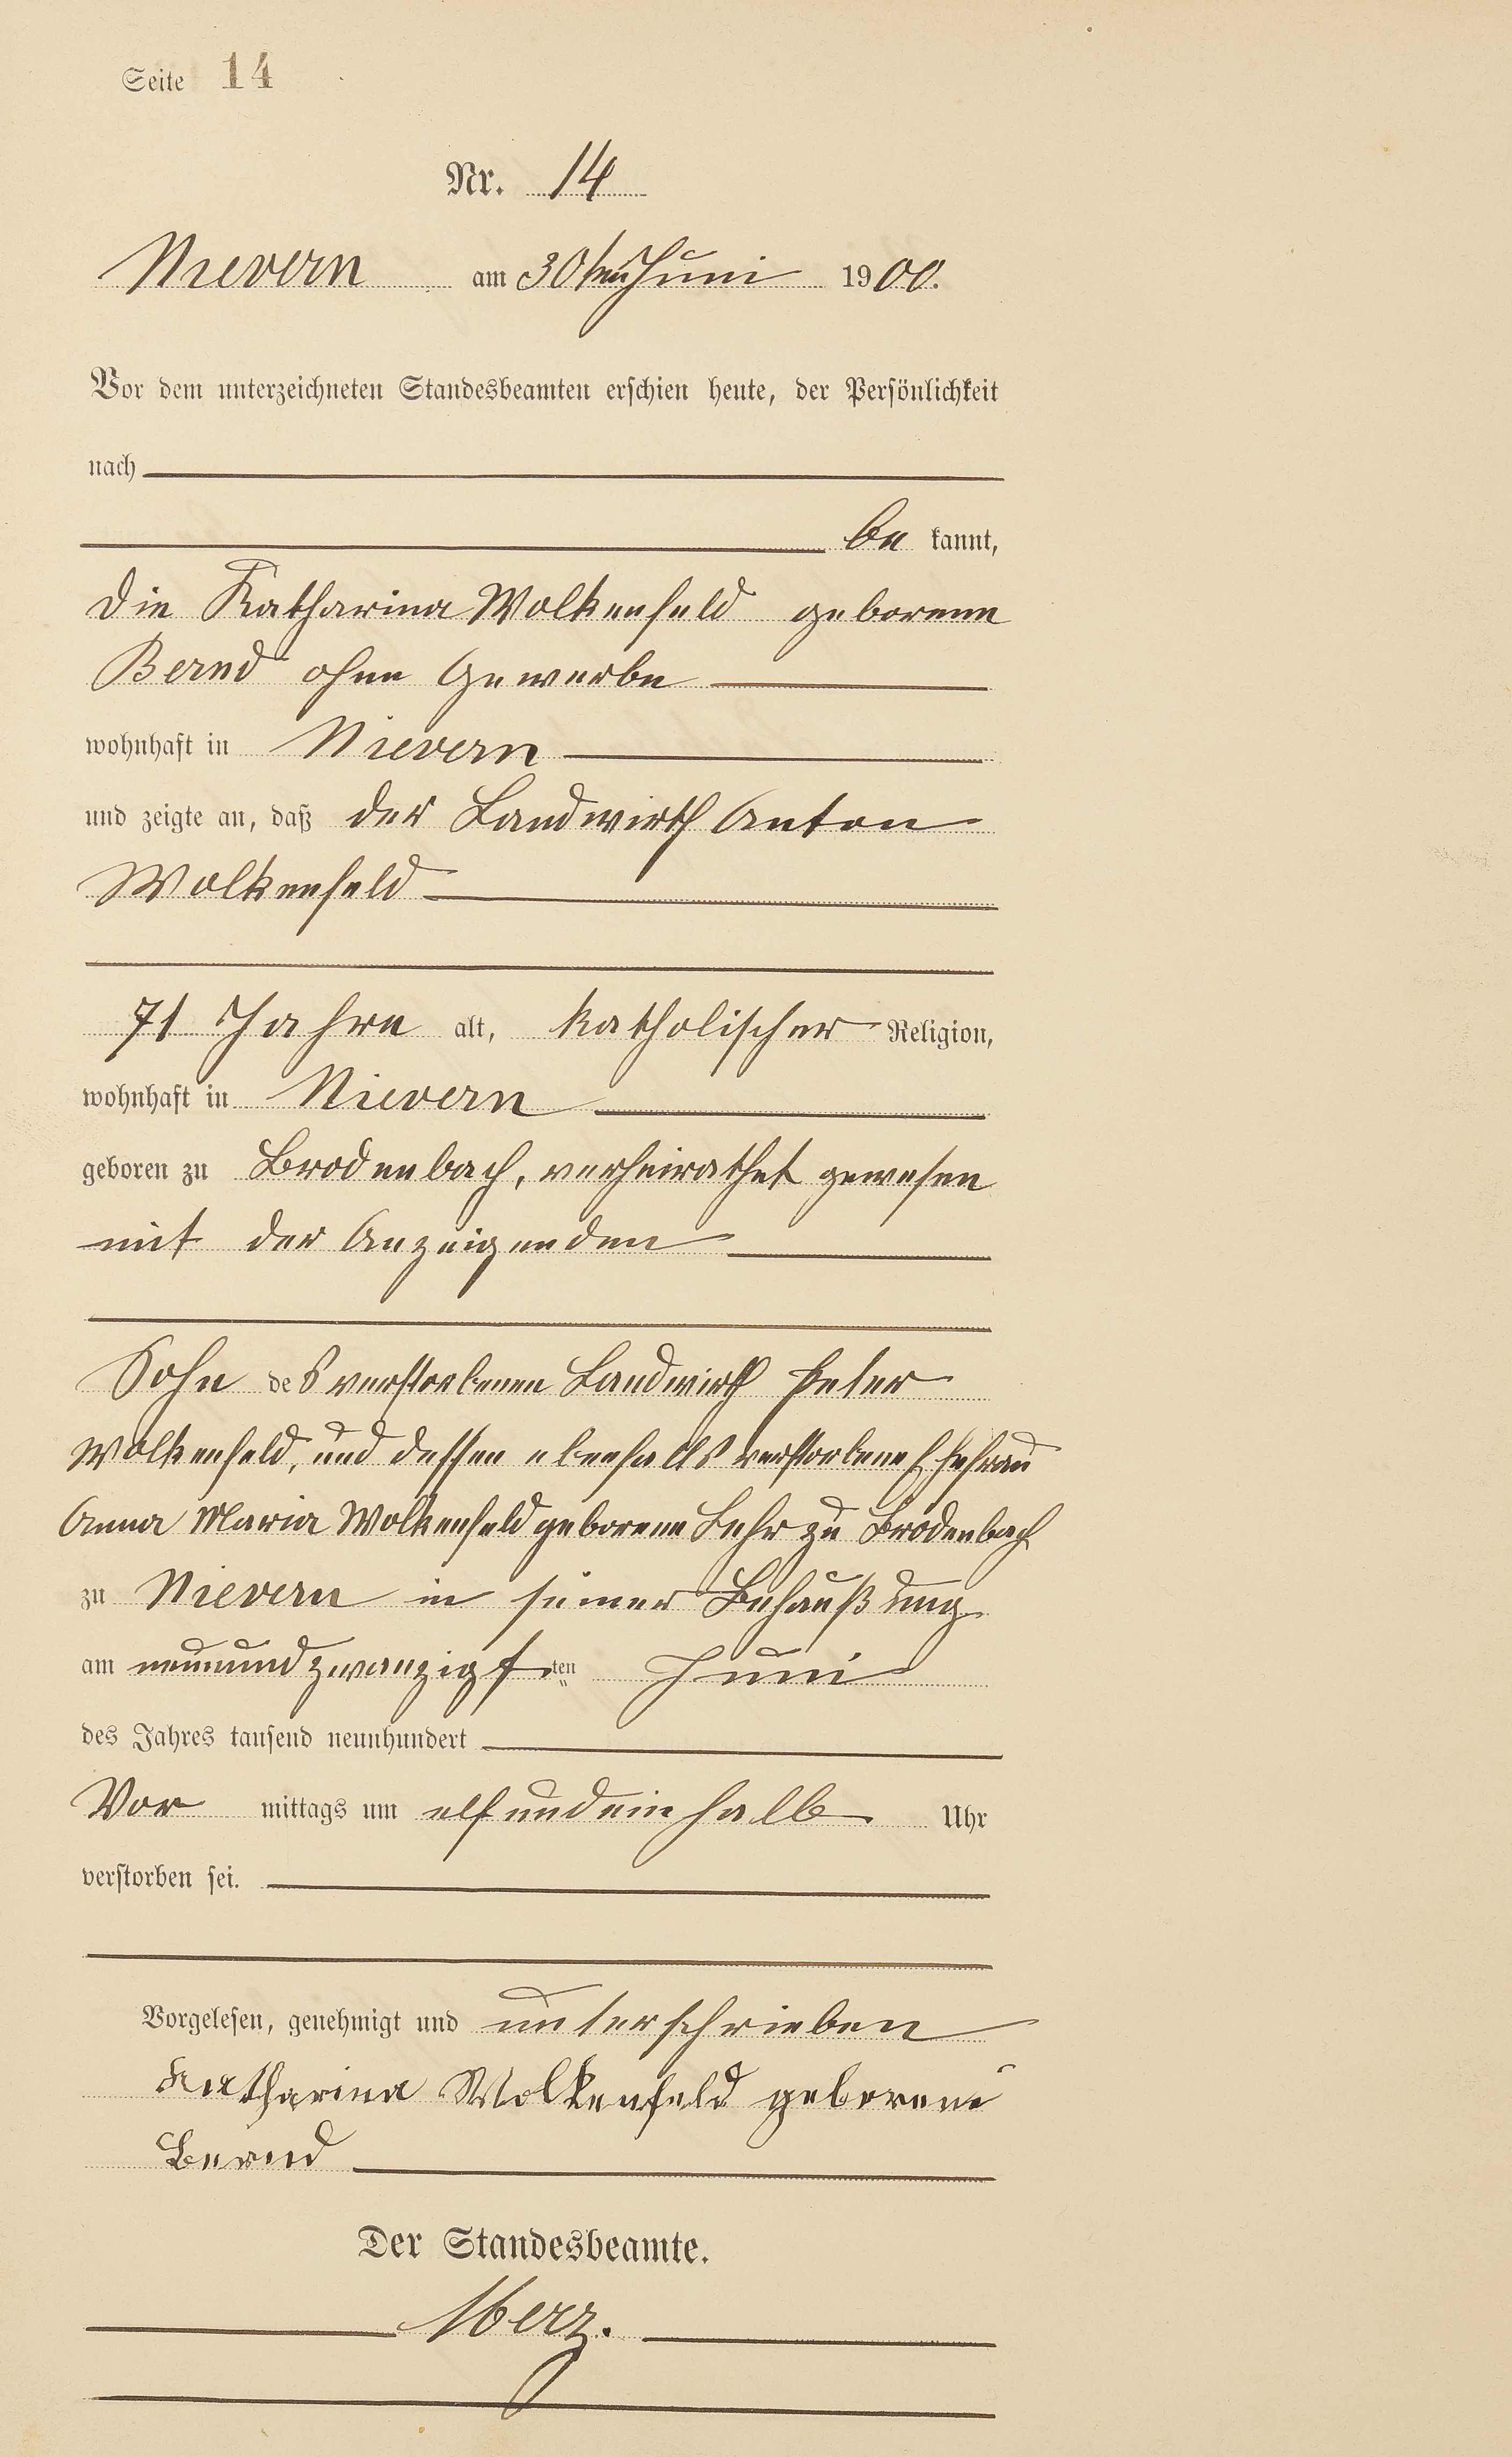 Seite 14
Nr. 14
Nievern am 30ten Juni 1900.
Vor dem unterzeichneten Standesbeamten erschien heute, der Persönlichkeit
nach
be kannt,
die Katharina Wolkenfeld geborene
Bernd ohne Gewerbe
wohnhaft in Nievern
und zeigte an, daß der Landwirth Anton
Wolkenfeld
71 Jahre alt, katholischer Religion,
wohnhaft in Nievern
geboren zu Brodenbach, verheirathet gewesen
mit der Anzeigenden
Sohn des verstorbenen Landwirth Peter
Wolkenfeld, und dessen ebenfalls verstorbene Ehefrau
Anna Maria Wolkenfeld geborene Lehr zu Brodenbach
zu Nievern in seiner Behaußung
am neunundzwanzigsten Juni
des Jahres tausend neunhundert
Vor mittags um elfundeinhalb Uhr
verstorben sei.
Vorgelesen, genehmigt und unterschrieben
Katharina Wolkenfeld geborene
Bernd
Der Standesbeamte.
Merz.